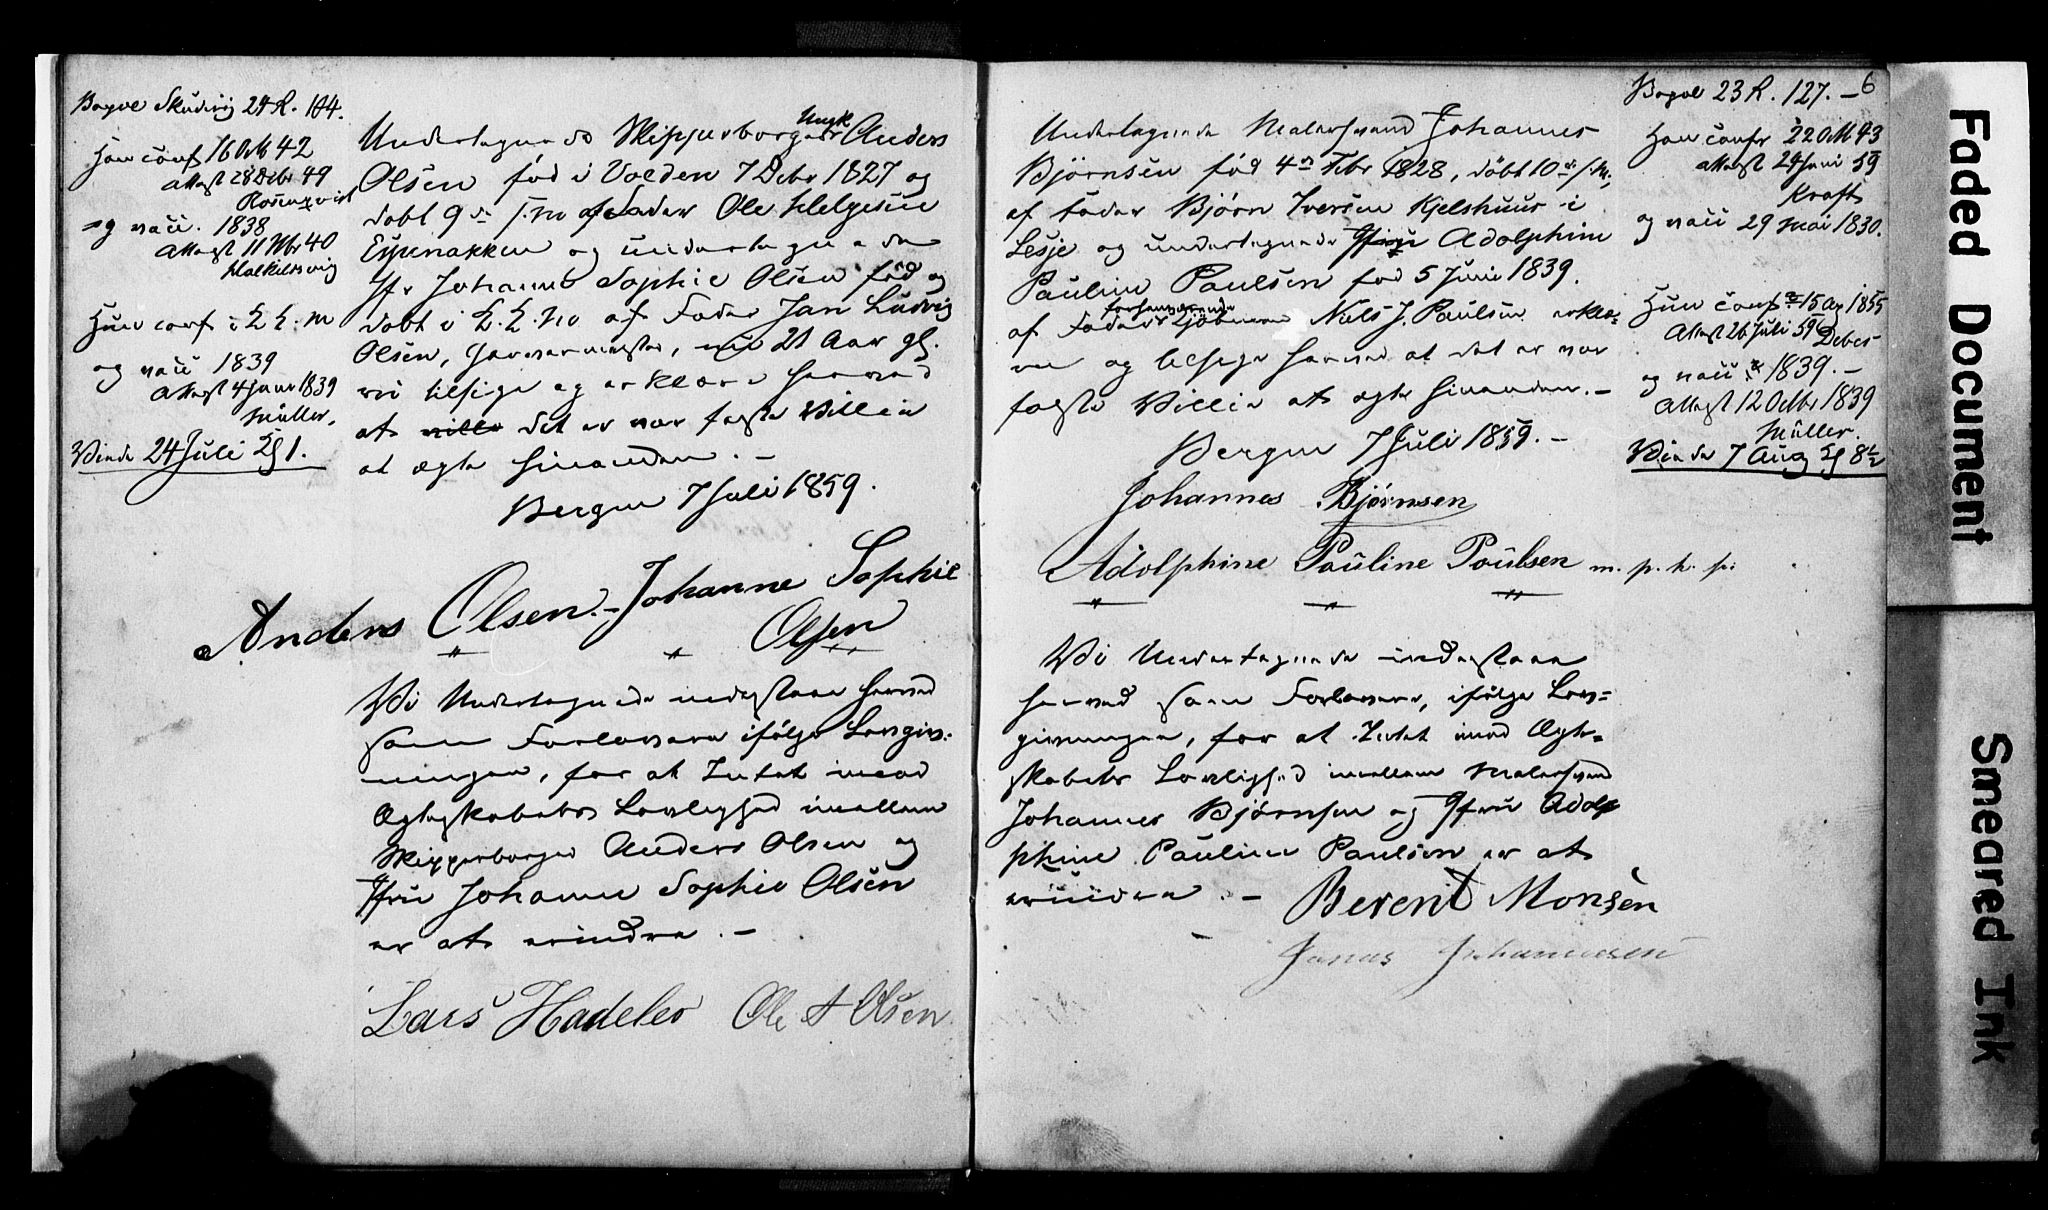 Bagve Skudevig 24 R. 104.
Han conf 16 Octb 42
Attest 28 Debr 49
Rosenqvist
og vacc. 1838
Attest 11 Nbr 40
Hun conf i L. L. M
og vacc 1839
Attest 4 Juni 1839
Müller.
Viede 24 Juli Kl 1.
Undertegnede Skipperborger Anders
Olsen fød i Volden 7 Debr 1827 og
døbt 9de s. M af Fader Ole Helgesen
Espenakken og undertegnede
Jfr Johanne Sophie Olsen fød og
døbt i L. L. M af Fader Jan Ludvig
Olsen, Farvermester, nu 21 Aar gl.
vi tilsige og erklære herved
at det er vor faste Villie
at ægte hinanden. –
Bergen 7 Juli 1859.
Anders Olsen. – Johanne Sophie
Olsen
Vi Undertegnede indestaae herved
som Forlovere ifølge Lovgiv-
ningen, for at Intet imod
Ægteskabets Lovlighed imellem
Skipperborger Anders Olsen og
Jfru Johanne Sophie Olsen
er at erindre. –
Lars Hadeler Ole A Olsen
6
Bagve 23 R. 127. –
Han confr 22 Oct 43
Attest 24 Juni 59
Kraft
og vacc 29 Mai 1830.
Hun conf 15 Ap 1855
Attest 26 Juli 59 Debes
og vacc 1839. –
Attest 12 Octbr 1839
Müller.
Viede 7 Aug Kl 8½
Undertegnede Malersvend Johannes
Bjørnsen fød 4de Febr 1828, døbt 10de s. M.,
af Fader Bjørn Iversen Kjelshuus i
Lesje og undertegnede Jfru Adolphine
Pauline Paulsen fød 5 Juni 1839.
forhenværende
af Fader Kjøbmand Niels J. Paulsen erklæ-
re og tilsige herved at det er vor
faste Villie at ægte hinanden. –
Bergen 7 Juli 1859. –
Johannes Bjørnsen
Adolphine Pauline Poulsen m. p. h. p.
Vi Undertegnede indestaae
herved som Forlovere, ifølge Lov-
givningen, for at Intet imod Ægte-
skabets Lovlighed imellem Malersvend
Johannes Bjørnsen og Jfru Adol
phine Pauline Paulsen er at
erindre. – Berent Monsen
Jonas Johannesen
Faded Document
Smeared Ink